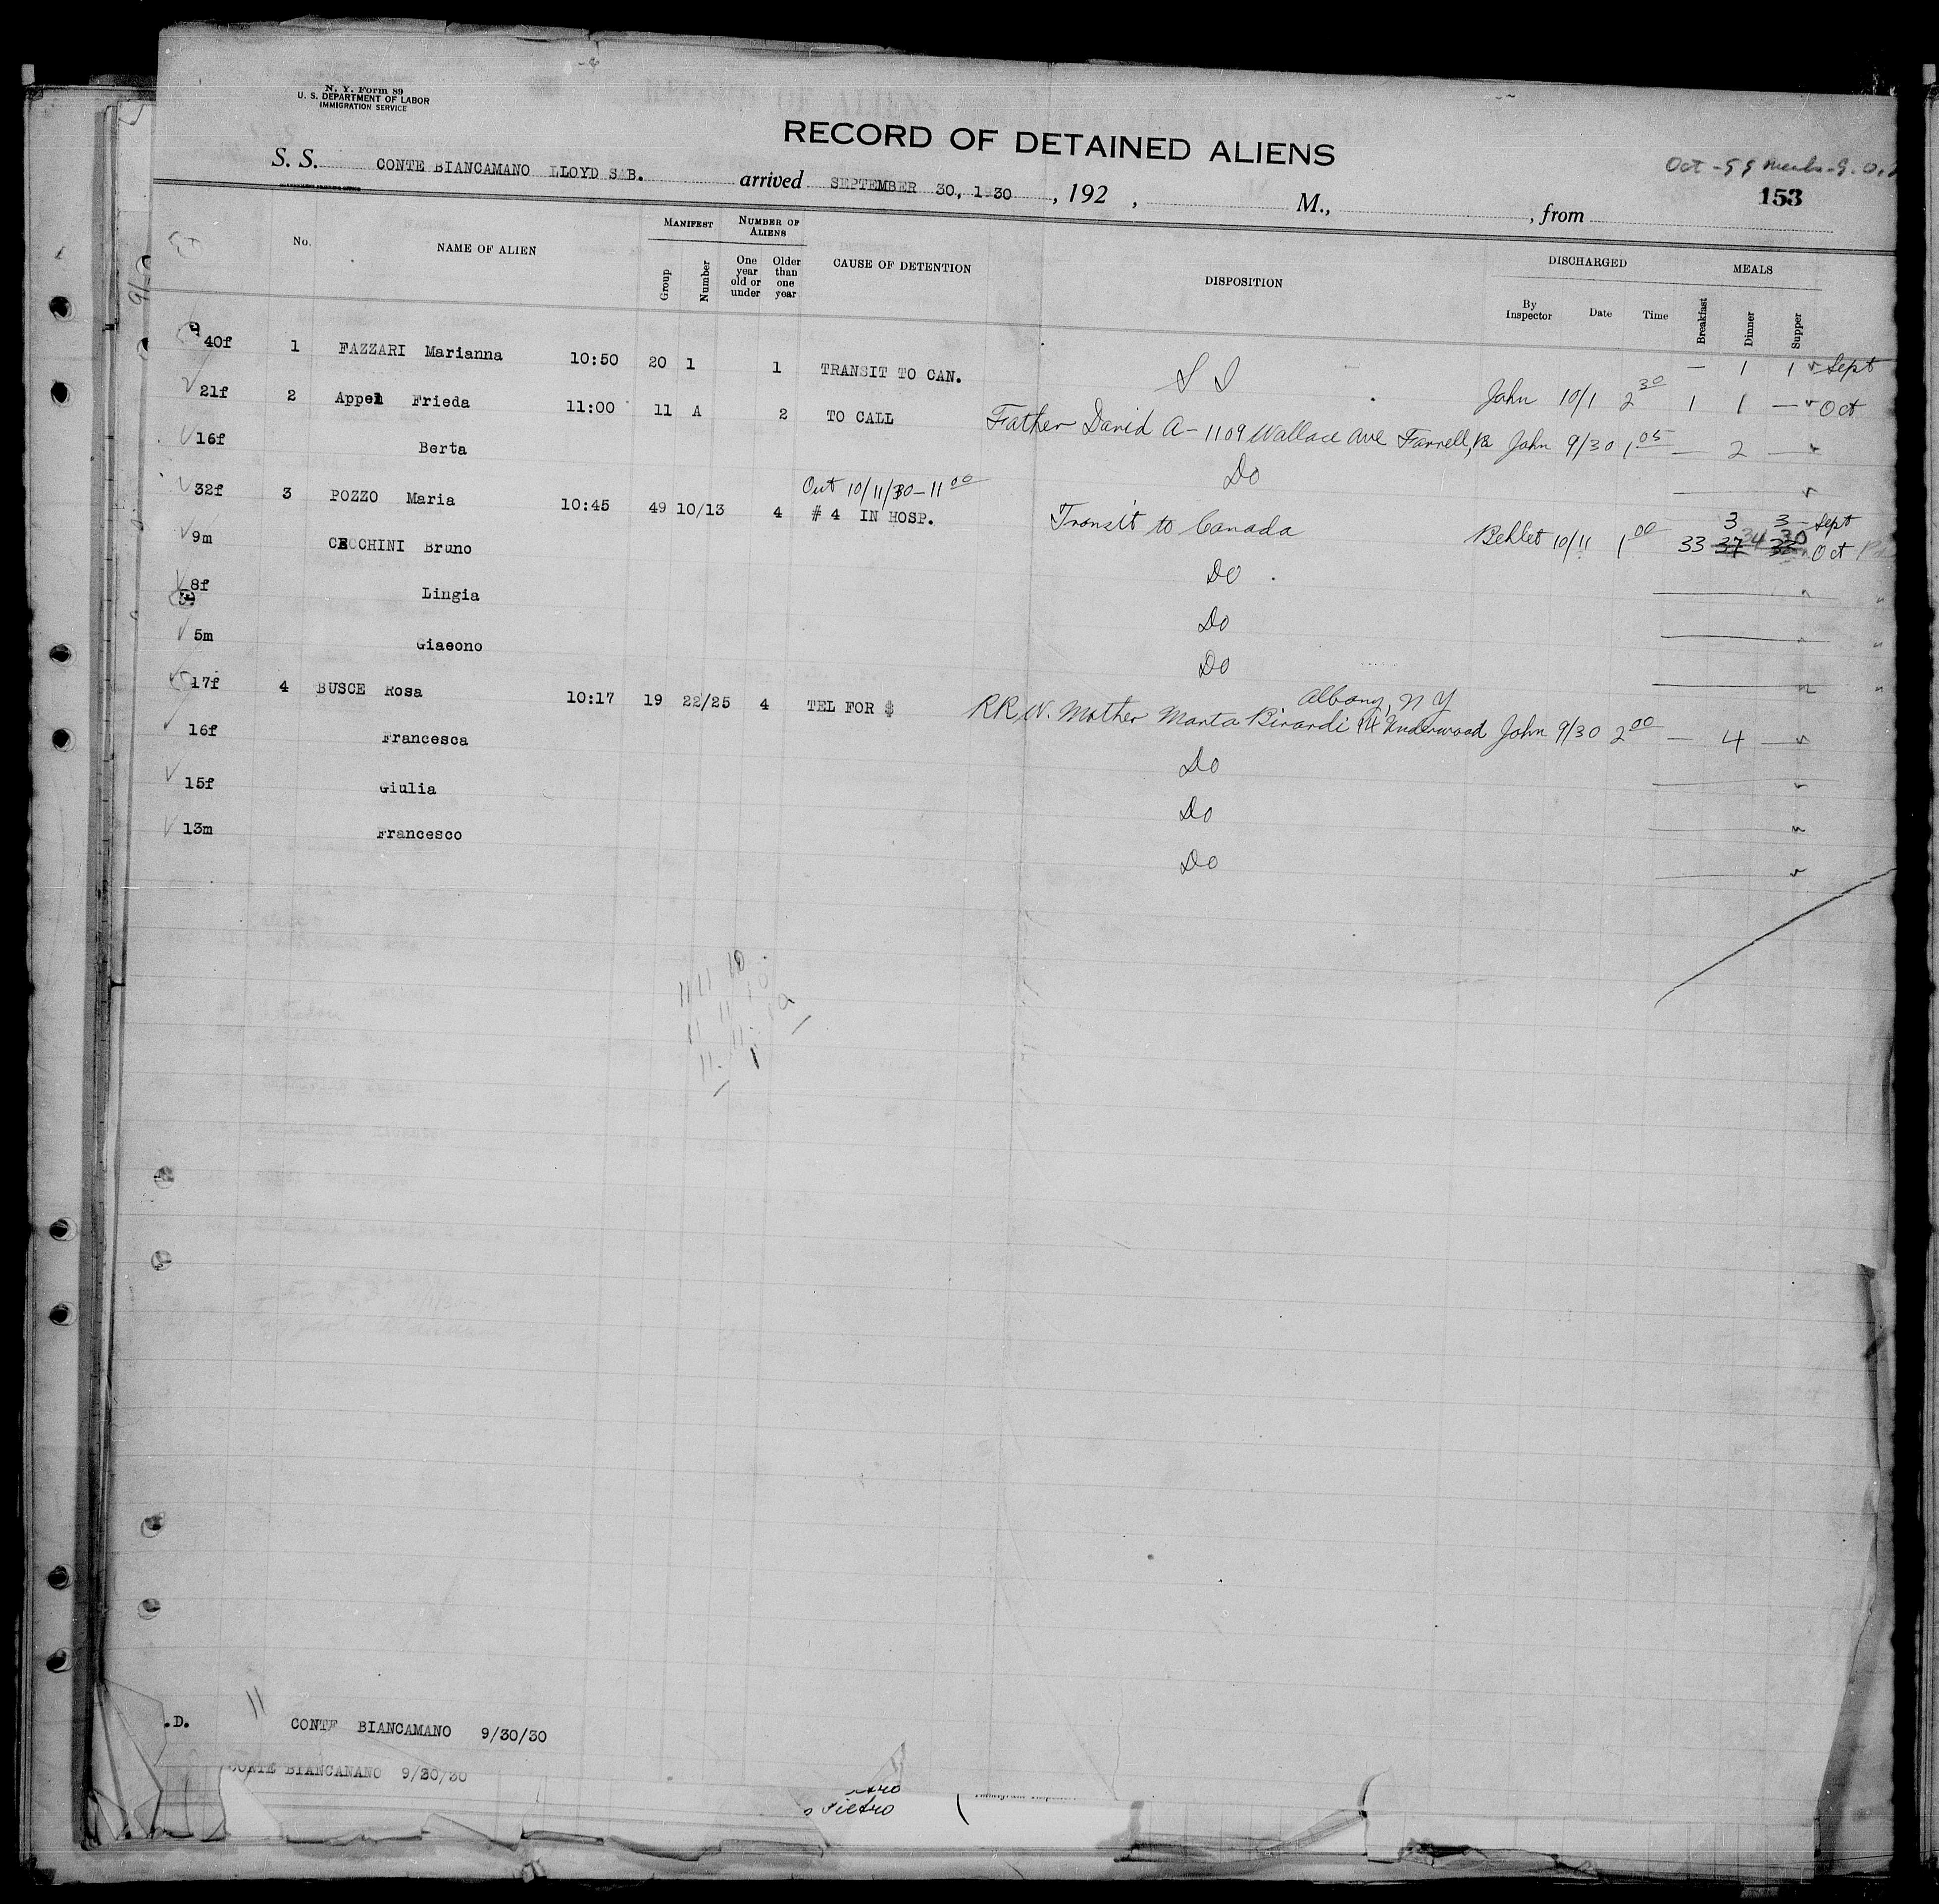 N. Y. Form 89
U. S. DEPARTMENT OF LABOR
IMMIGRATION SERVICE
RECORD OF DETAINED ALIENS
153
S. S. CONTE BIANCAMANO LLOYD SAB. arrived SEPTEMBER 30, 1930, 192 , M., , from
No. NAME OF ALIEN MANIFEST Group Number NUMBER OF ALIENS One year old or under Older than one year CAUSE OF DETENTION DISPOSITION DISCHARGED By Inspector Date Time MEALS Breakfast Dinner Supper
40f 1 FAZZARI Marianna 10:50 20 1 1 TRANSIT TO CAN. S I John 10/1 2 30 — 1 1 Sept
1 1 — Oct
21f 2 Appel Frieda 11:00 11 A 2 TO CALL Father David A - 1109 Wallace Ave Farrell, Pa John 9/30 1 05 — 2 —
16f Berta Do
Out 10/11/30 - 11 00
32f 3 POZZO Maria 10:45 49 10/13 4 # 4 IN HOSP. Transit to Canada Behlet 10/11 1 00 3 3 - Sept
33 37 34 30 Oct
9m CECCHINI Bruno Do
8f Lingia Do
5m Giaeono Do
17f 4 BUSCE Rosa 10:17 19 22/25 4 TEL FOR $ RR N. Mother Marta Birardi 94 Underwood Albany, N Y John 9/30 2 00 — 4 —
16f Francesca Do
15f Giulia Do
13m Francesco Do
11 11 10
11 11 10
11 11
.D. 11 CONTE BIANCAMANO 9/30/30
CONTE BIANCAMANO 9/30/30
Pietro